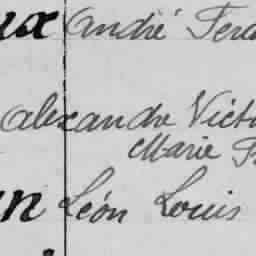 ux André Fer
Alexandre Vict
Marie F
n Léon Louis